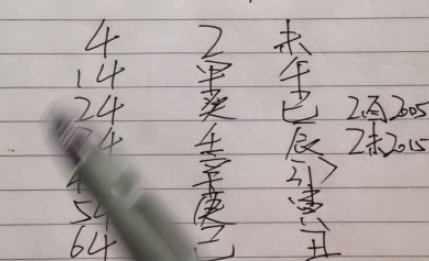 4 乙未
14 甲午
24 癸巳 乙酉2005
4 壬辰 乙未2015
辛卯
5 庚寅
64 己丑